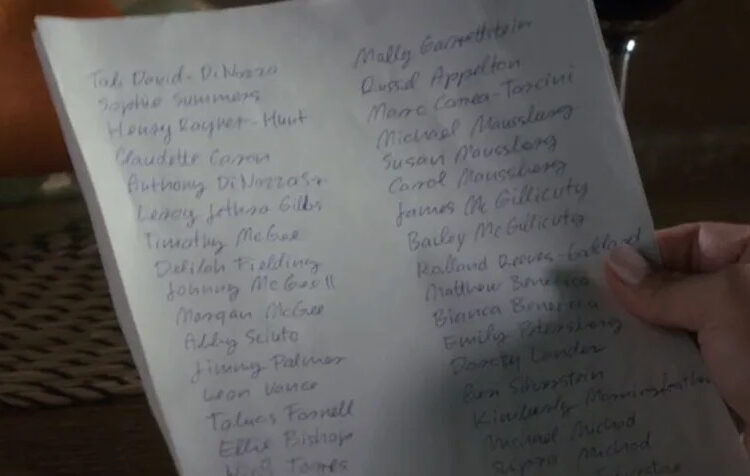 Tali David-DiNozzo
Sophie Summers
Henry Rayner-Hunt
Claudette Caron
Anthony DiNozzo Sr
Leroy Jethro Gibbs
Timothy McGee
Delilah Fielding
Johnny McGee II
Morgan McGee
Abby Sciuto
Jimmy Palmer
Leon Vance
Tobias Fornell
Ellie Bishop
Nick Torres
Molly
Russid Appelton
Marc Correa-Torcini
Michael Maussberg
Susan Maussberg
Carol Maussberg
James McGillicuty
Bailey McGillicuty
Rolland Reeves-
Matthew Benefica
Bianca Benefica
Emily Petersberg
Darcey Lander
Ben Silverstein
Kimberly
Michael Michod
Michod